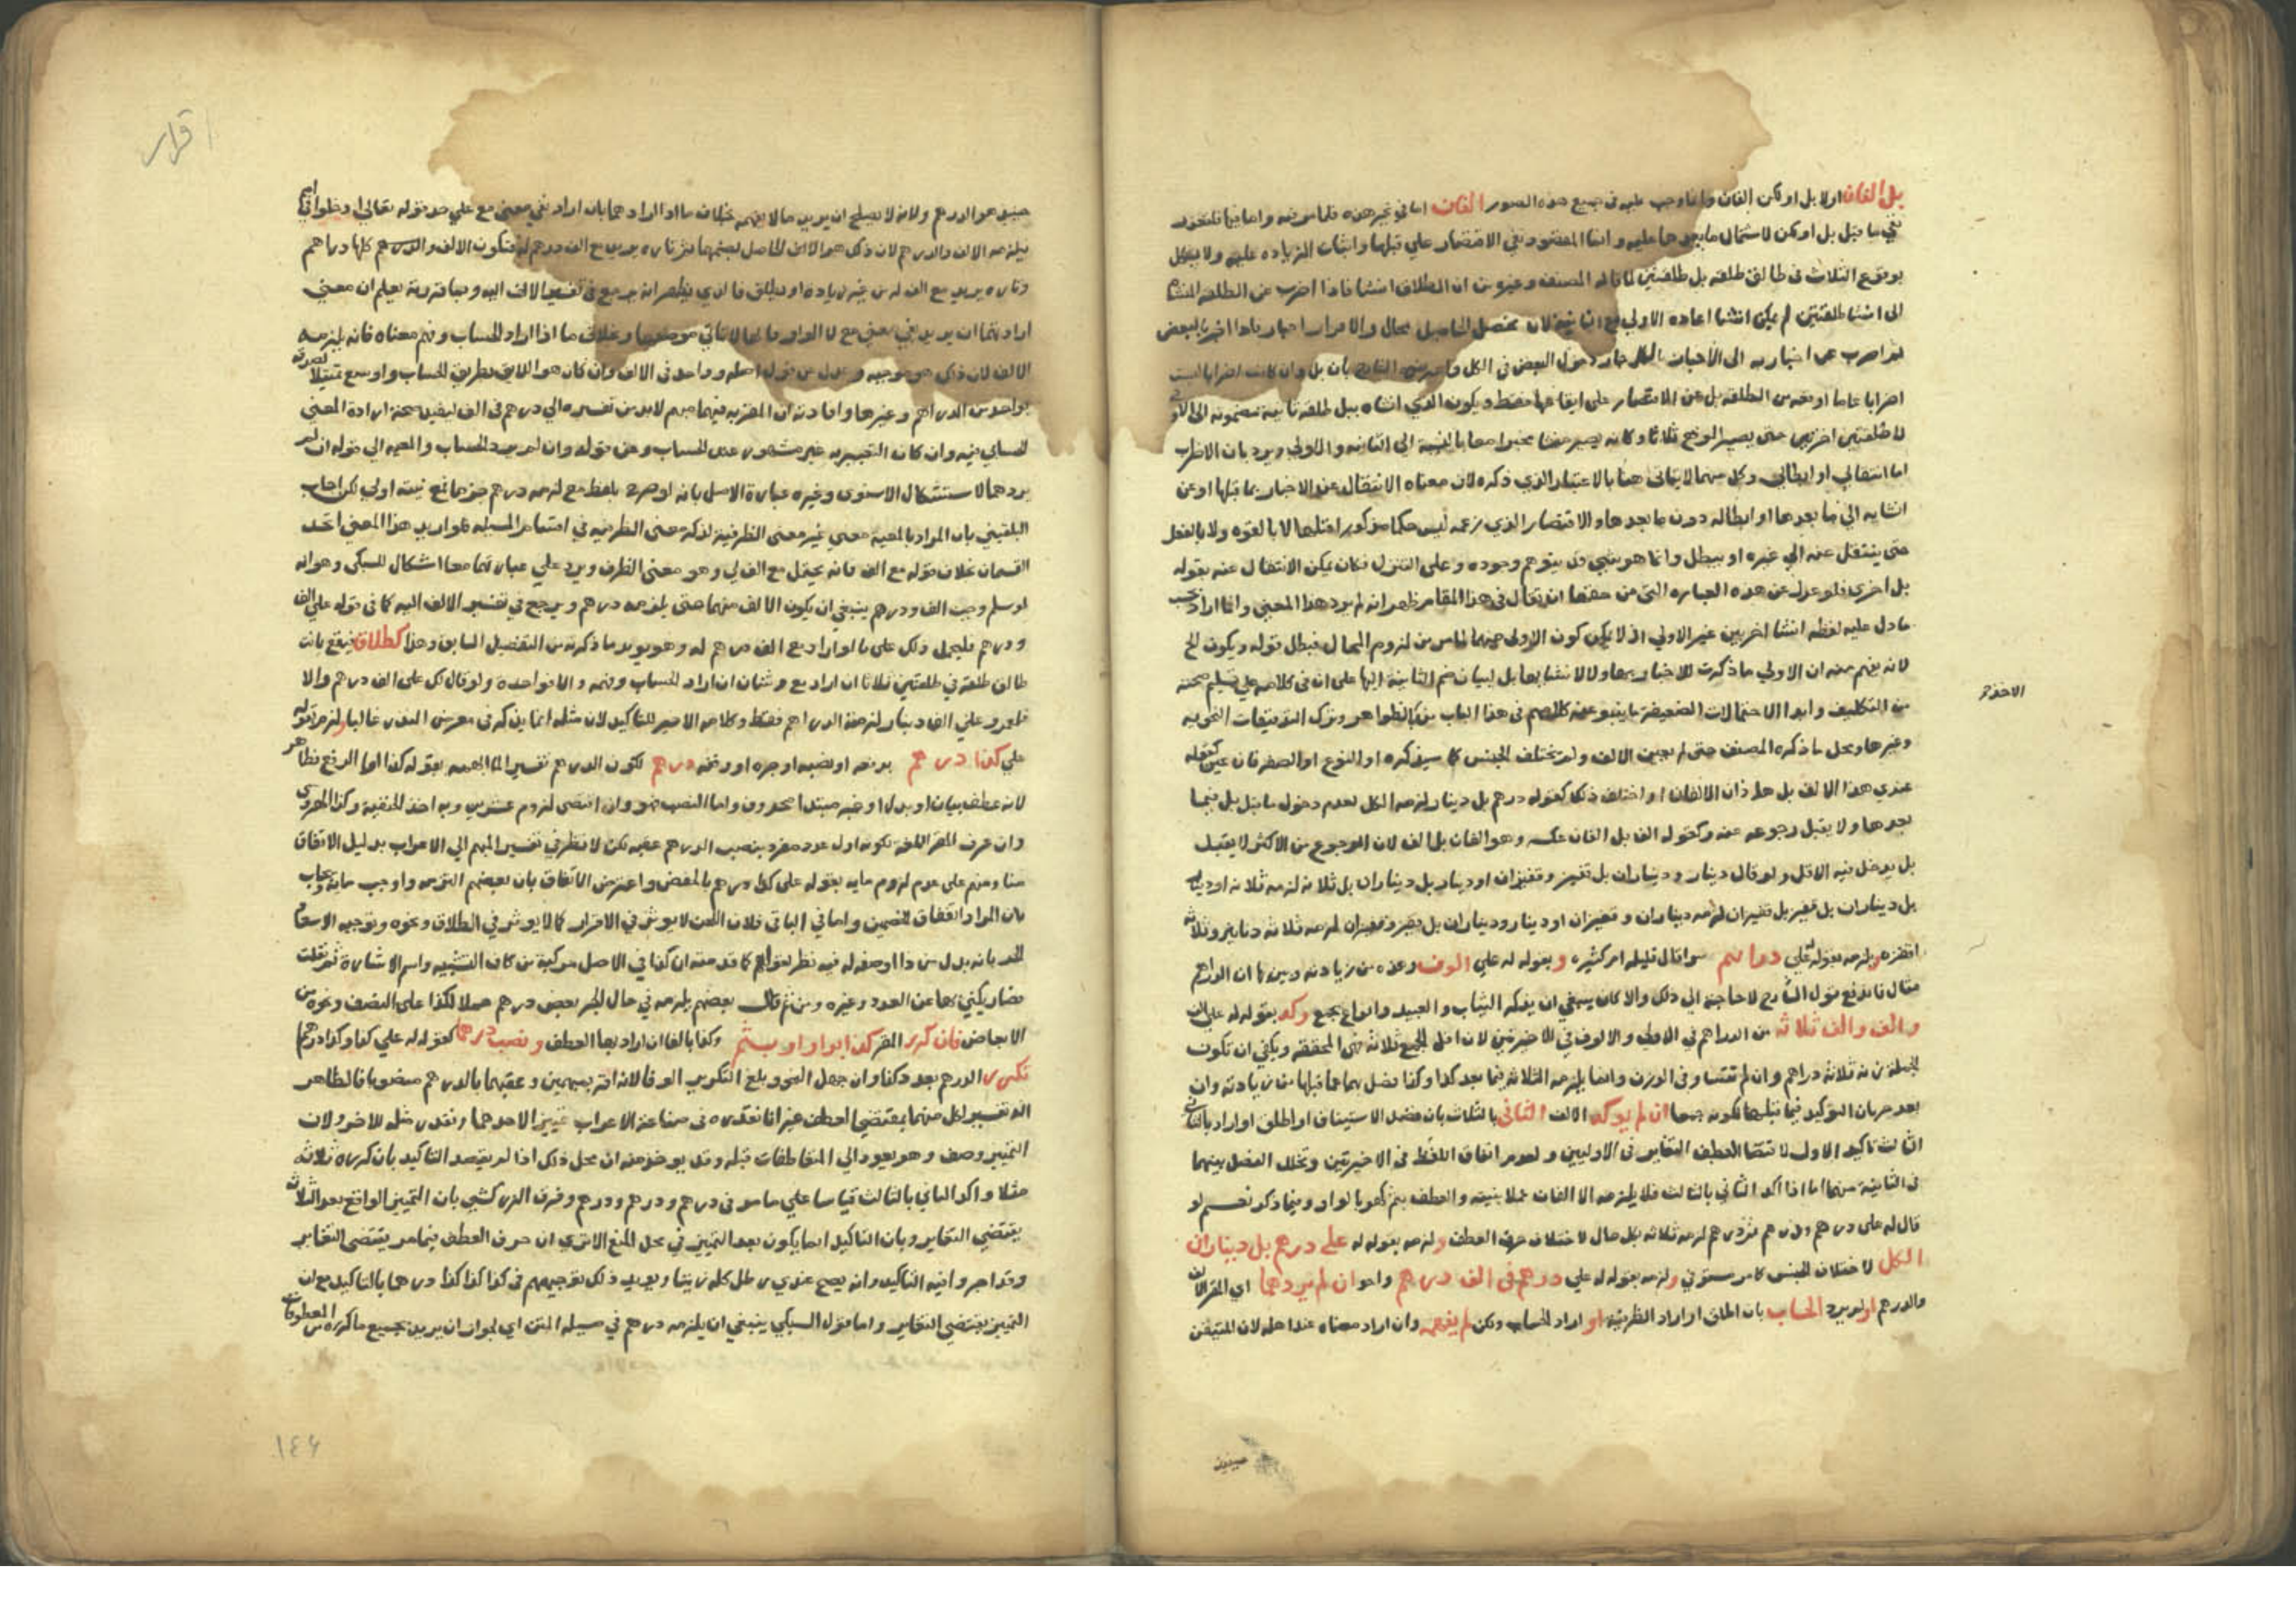 بل الفان اولا بل او لكن الفان وانما وجب عليه في جميع هذه الصور الفان اما في غير هذه فلما مر فيه واما فيها فلتعذر
نفي ما قبل بل او لكن لاشتمال ما بعدها عليه وانما المقصود نفي الاقتصار على قبلها واثبات الزيادة عليه ولا يشكل
بوقوع الثلاث في طالق طلقة بل طلقتين لما قاله المصنف وغيره من ان الطلاق انشا فاذا اضرب عن الطلقه
الى انشا طلقتين لم يمكن انشا اعاده الاولى مع الثانية لان تحصيل الحاصل محال والاقرار اخبار فاذا اخبر بالبعض
ثم اضرب عن اخباره الى الاخبار بالكل جاز دخول البعض في الكل
اضرابا عاما اوقعه من الطلقه بل عن الاقتصار على ايقاعها فقط ويكون الذي انشاه ببل طلقه ثانية مضمومة الى الاولى
لا طلقتين اخرتين حتى يصير الوقع ثلاثا
اما انتقالي او ابطالي وكل منهما لا يتاتى هنا بالاعتبار الذي ذكره لان معناه الانتقال عند الاخبار بما قبلها او عن
انشايه الى ما بعدها او ابطاله دون ما بعدها والاقتصار الذي زعمه ليس حكما مذكورا قبلها لا بالقوه ولا بالفعل
حتى ينتقل عنه الى غيره او يبطل وانما هو شي قد يتوهم وجوده وعلى التنزل فكان يمكن الانتقال عنه بقوله
بل اخرى فلو عدل عن هذه العباره التي من حقها ان تقال في هذا المقام ظهر انه لم يرد هذا المعنى وانما اراد
ما دل عليه لفظه انشا اخريين غير الاولى اذ لا يمكن كون الاولى منهما لما مر من لزوم المحال فبطل قوله ويكون الخ
لانه يفهم منه ان الاولى ما ذكرت للاخبار بها ولا لانشا بها بل لبيان ضم الثانية اليها على ان في كلامه على تسليم صحته
من التكليف وابدا الاحتمالات الضعيفة ما ينبو عنه كلامهم في هذا الباب من الظواهر وترك التدقيقات النحويه
وغيرها ومحل ما ذكره المصنف حيث لم يعين الالف ولم يختلف الجنس كما سيذكره او النوع او الصفه فان عين كقوله
عندي هذا الالف بل هذان الالفان او اختلف ذلك كقوله درهم بل دينار لزمه الكل لعدم دخول ما قبل بل فيما
بعدها ولا يقبل رجوعه عنه وكقوله الف بل الفان عكسه وهو الفان بل الف لان الرجوع من الاكثر لا يقبل
بل يدخل فيه الاقل ولو قال دينار وديناران بل قفيز وقفيزان او دينار بل ديناران بل ثلاثة لزمه ثلاثة او دينار
بل ديناران بل قفيز بل قفيزان لزمه ديناران وقفيزان او دينار وديناران بل قفيز وقفيزان لزمه ثلاثة دنانير وثلاثة
اقفزه ويلزمه بقوله علي دراهم سوا قال قليله ام كثيره و بقوله له علي الوف وعده من زيادته وبين بها ان الدراهم
مثال فاندفع قول الشارح لا حاجة الى ذلك والا كان ينبغي ان يذكر الثياب والعبيد وانواع جمع وكذا بقوله له علي الف
والف والف ثلاثة من الدراهم في الاولى والالوف في الاخيرتين لان اقل الجمع ثلاثة فهي المحققه ويكفي ان تكون
الجملة زنة ثلاثة دراهم وان لم تتساو في الوزن وانما يلزمه الثلاثة فيما بعد كذا وكذا فضل بهما عما قبلها من زيادته وان
بعد جريان التوكيد فيما قبلها لكونه جمعا ان لم يوكد الالف الثاني بالثالث بان قصد الاستيناف او اطلق او اراد بالثاني
الثالث تاكيد الاول لاقتضا العطف التغاير في الاوليين ولعدم اتفاق اللفظ في الاخيرتين وتخلل الفصل بينهما
في الثانية منهما اما اذا اكد الثاني بالثالث فلا يلزمه الا الفان عملا بنيته والعطف بثم كهو بالواو فيما ذكر نعم لو
قال له علي درهم ودرهم ثم درهم لزمه ثلاثة بكل حال لاختلاف حرف العطف ولزمه بقوله له علي درهم بل ديناران
الكل لاختلاف الجنس كما مر مستوفي ولزمه بقوله له علي درهم في الف درهم واحد ان لم يردهما اي المقر الالف
والدرهم او لم يرد الحساب بان اطلق او اراد الظرفية او اراد الحساب ولكن لم يفهمه وان اراد معناه عند اهله لان المتيقن
الاخذ
حينيذ
اقرار
حينيذ هو الدرهم ولانه لا يصلح ان يريد ما لا يفهمه بخلاف ما اذا ارادهما بان اراد بفي معنى مع على حد قوله تعالى ادخلوا في امم
يلزمه الالف والدرهم لان ذلك هو الالف الحاصل بضمهما ثم تاره يريد مع الف درهم له فتكون الالف والدرهم كلها دراهم
وتاره يريد مع الف له من غير زيادة او يطلق فالذي يظهر انه يرجع في تفسير الالف اليه وبما قررته يعلم ان معنى
ارادتهما ان يريد بفي معنى مع لا الواو وخلاف ما اذا اراد الحساب وفهم معناه فانه يلزمه
الالف لان ذلك هو موجبه وعدل عن قول اصله وواحد في الالف وان كان هو الاليق بطريق الحساب واوسع تمثيلا لصدقه
بواحد من الدراهم وغيرها وافادته ان المقر به فيهما مبهم لا بد من تفسيره الى درهم في الف ليفيد صحة ارادة المعنى
الحسابي فيه وان كان التعبير به غير مشهور عند الحساب وعن قوله وان لم يرد الحساب والمعيه الى قوله ان لم
يردهما لاستشكال الاسنوي وغيره عبارة الاصل بانه لو صرح بلفظ مع لزمه درهم جزما فمع نيته اولى لكن اجاب
البلقيني بان المراد بالمعية معنى غير معنى الظرفية لذكره معنى الظرفيه في اقسام المسيله فلو اريد هذا المعنى اتحد
القسمان بخلاف قوله مع الف فانه يحتمل مع الف لي وهو معنى الظرف ويرد على عبارتهما معا اشكال السبكي وهو انه
لو سلم وجب الف ودرهم ينبغي ان يكون الالف مبهما حتى يلزمه درهم ويرجع في تفسير الالف اليه كما في قوله علي الف
ودرهم فليحمل ذلك على ما لو اراد مع الف درهم له وهو يويد ما ذكرته من التفصيل السابق وهذا كطلاق فيقع بانت
طالق طلقة في طلقتين ثلاثا ان اراد مع وثنتان ان اراد الحساب وفهمه والا فواحده ولو قال لك علي الف درهم والا
فلعمرو علي الف دينار لزمته الدراهم فقط وكلامه الاخير للتاكيد لان مثله انما يذكر في معرض النذر غالبا ولزم بقوله
علي كذا درهم برفعه او نصبه او جره او وقفه درهم لكون الدرهم تفسيرا لما ابهمه بقوله كذا اما الرفع فظاهر
لانه عطف بيان او بدل او خبر مبتدا محذوف واما النصب فهو وان اقتضى لزوم عشرين وبه اخذ الحنفية وكذا الحربوي
وان عرف المقر اللغه لكونه اول عدد مفرد ينصب الدرهم عقبه لكن لا نظر في تفسير المبهم الى الاعراب بدليل الاتفاق
منا ومنهم على عدم لزوم مايه بقوله علي كذا درهم بالخفض واعترض الاتفاق بان بعضهم التزمه واوجب مايه ويجاب
بان المراد اتفاق الخصمين واما في الباقي فلان اللحن لا يوثر في الاقرار كما لا يوثر في الطلاق ونحوه وتوجيه الاسعاد
الجر بانه بدل من ذا اوصفه له فيه نظر كما قدمته ان كذا في الاصل مركبة من كاف التشبيه واسم الاشارة ثم نقلت
فصار يكنى بها عن العدد وغيره ومن ثم قال بعضهم يلزمه في حال الجر بعض درهم حملا لكذا على النصف ونحوه من
الابعاض فان كرر المقر كذا بواو او بثم وكذا بالفا ان اراد بها العطف ونصب درهما كقوله له علي كذا وكذا درهما
تكرر الدرهم بعدد كذا وان جهل النحو وبلغ التكرير الوفا لانه اقر بمبهمين وعقبهما بالدرهم منصوبا فالظاهر
انه تفسير لكل منهما بمقتضى العطف غير انا نقدره في صناعة الاعراب تمييزا لاحدهما ونقدر مثله للاخر ولان
التمييز وصف وهو يعود الى المتعاطفات قبله وقد يوخذ منه ان محل ذلك اذا لم يقصد التاكيد بان كرره ثلاثة
مثلا واكد الثاني بالثالث قياسا على ما مر في درهم ودرهم ودرهم وفرق الزركشي بان التمييز الواقع بعد الثلاثة
يقتضي التغاير وبان التاكيد انما يكون بعد التمييز في محل المنع الا ترى ان حرف العطف فيما مر يقتضي التغاير
وقد اجروا فيه التاكيد وانه يصح عندي رطل كله زيتا ويويد ذلك توجيههم في كذا كذا كذا درهما بالتاكيد مع ان
التمييز يقتضي التغاير واما قول السبكي ينبغي ان يلزمه درهم في مسيلة المتن اي لجواز ان يريد بجميع ما كرره من المعطوفات
١٤٦